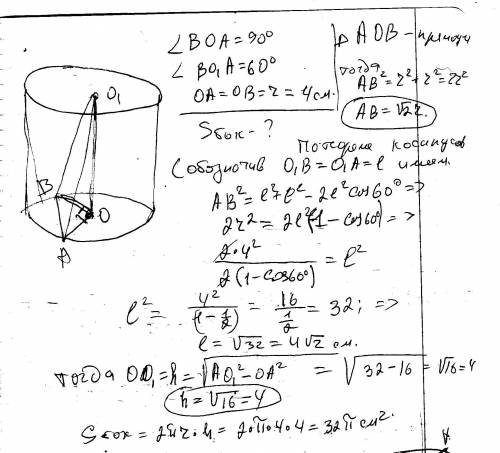 ∠BOA = 90°
∠BO₁A = 60°
OA = OB = r = 4 см.
Sбок - ?
△ AOB - прямоуг
тогда
AB² = r² + r² = 2r²
AB = √2 r.
O₁
B
O
A
По теореме косинусов
обозначив O₁B = O₁A = l имеем
AB² = l² + l² - 2l² cos60° =>
2r² = 2l²(1 - cos60°) =>
2·4² / 2(1 - cos60°) = l²
l² = 4² / (1 - 1/2) = 16 / 1/2 = 32; =>
l = √32 = 4√2 см.
тогда OO₁ = h = √AO₁² - OA² = √32 - 16 = √16 = 4
h = √16 = 4
Sбок = 2πr·h = 2·π·4·4 = 32π см².
A